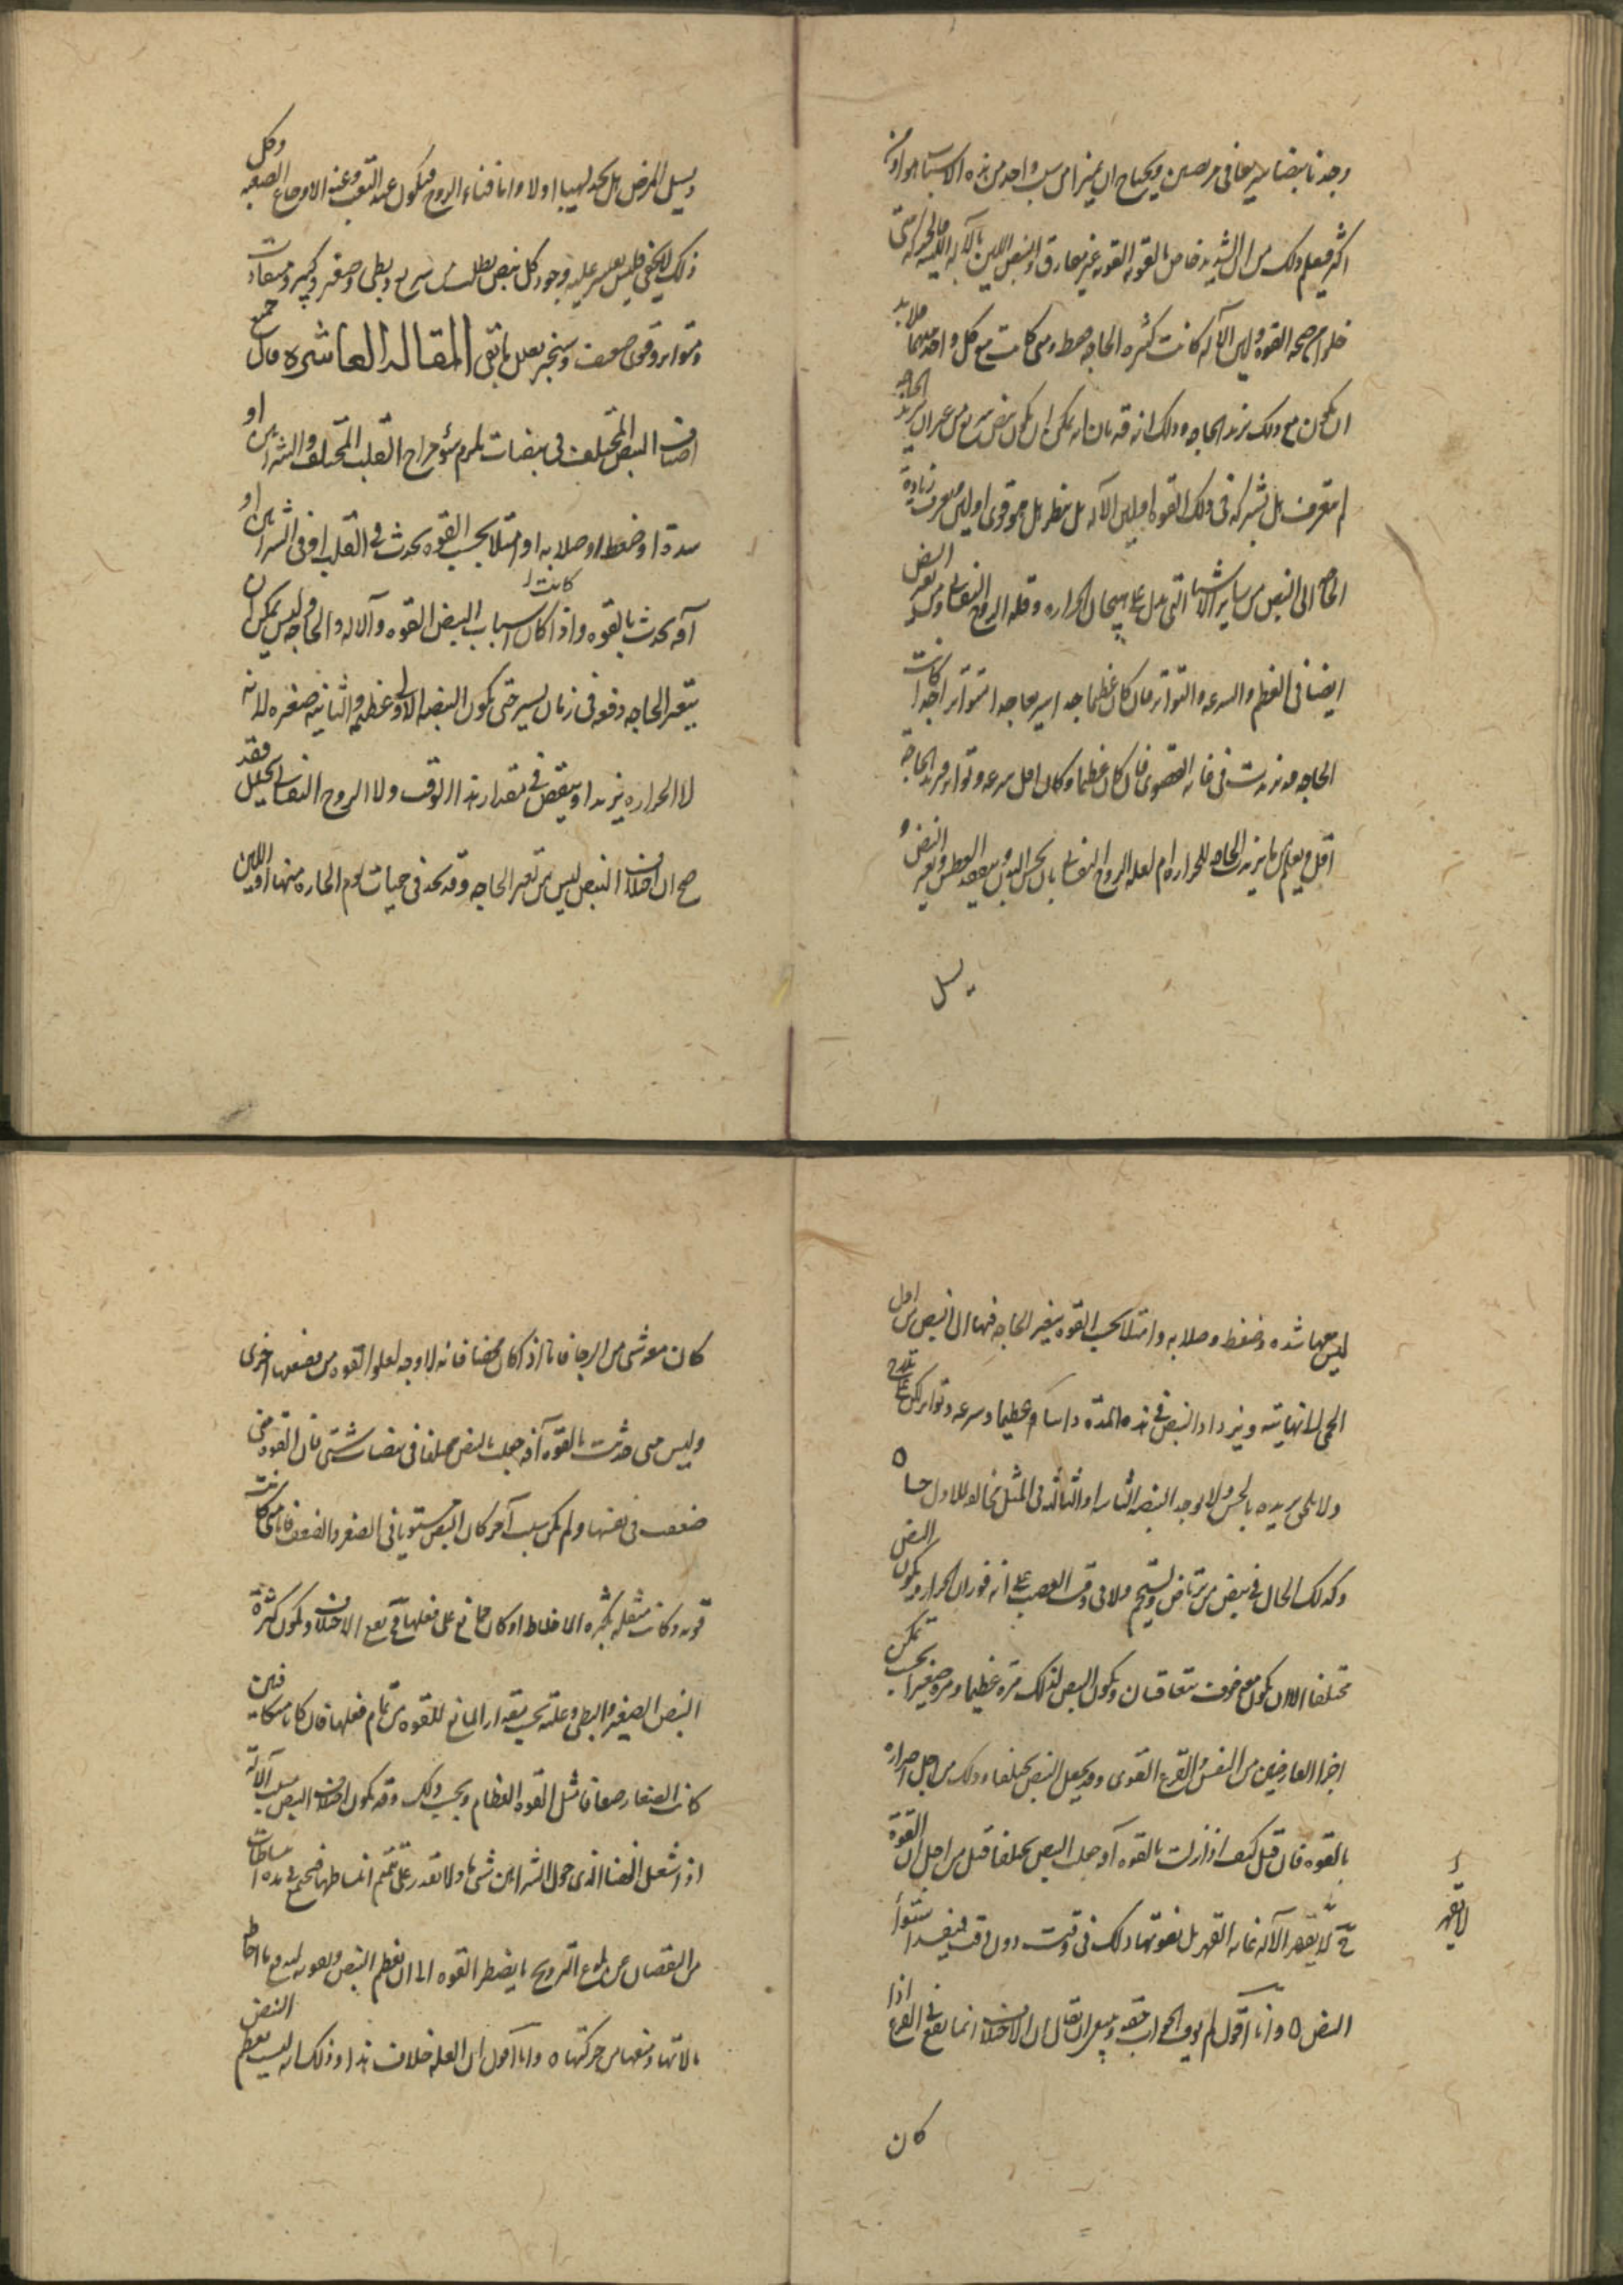 وجدنا نبضا سريعا في مريضين ويحتاج ان يميز امن سبب واحد من هذه الاسباب هو او من
اكثر فيعلم ذلك من ان الشديد خاص بالقوه القويه غير مفارق والنبض اللين بالآله اللينه
خلوا من صحه القوه ولين الآله كانت كثره الحاجه فقط ومتى كانت مع كل واحد منهما فلا بد
ان يكون مع ذلك تزيد الحاجه وذلك انه قد بان انه يمكن ان يكون نبض سريع من غير ان تزيد الحاجه
لم يتعرف هل تشركه في ذلك القوه او لين الآله بل ينظر هل هو قوي او لين فيعرف زيادة
الحاجه الى النبض من ساير الاشيا التي تدل على هيجان الحراره وقله الروح النفساني ومن تغير النبض
ايضا في العظم والسرعه والتواتر فان كان عظيما جدا سريعا جدا متواترا جدا كانت
الحاجه قد تزيدت في غايه القصوى فان كان عظيما وكان اقل سرعه وتواتر فتزيد الحاجة
اقل ويعلم هل تزيد الحاجه للحراره ام لقله الروح النفساني بان يجس البدن ويتفقد العطش وتغير النفس و
يسل
ويسل المريض هل يجد لهيبا اولا واما فناء الروح فيكون عند التعب وعند الاوجاع الصعبه وكل
ذلك لا يخفى فليس يعسر عليه وجود كل نبض يطلب من سريع وبطي وصغير وكبير ومتفاوت
ومتواتر وقوي وضعيف وسنخبر بعلل ما بقي المقاله العاشره قال جميع
اصناف النبض المختلف في نبضات يلزم سؤ مزاج القلب المختلف والشرايين او
سدة او ضغط او صلابه او امتلا بحسب القوه يحدث في القلب او في الشرايين او
آفه تحدث بالقوه واذا كانت اسباب النبض القوه وآلاله والحاجه وليس يمكن ان
يتغير الحاجه دفعه في زمان يسير حتى يكون النبضه الاولى عظيمه والثانيه صغيره لانه
لا الحراره يزيد او ينقص في مقدار هذا الوقت ولا الروح النفساني يتحلل فقد
صح ان اختلاف النبض ليس من تغير الحاجه وقد نجد في حميات يوم الحاره منها اللين
ليس معها شده وضغط وصلابه وامتلا بحسب القوه يتغير الحاجه فيها الى النبض من اول
الحمى لانهايتيه ويزداد النبض في هذه المدة دايما عظما وسرعه وتواتر لكن على تدرج
ولا يلحق تزيده بالحس ولا يوجد النبضه الثانيه او الثالثه في المثل مخالفه للاول حسا ٥
وكذلك الحال في نبض من يرتاض ويستحم ولا في وقت الغضب على انه فوران الحراره يكون النبض
مختلفا الا ان يكون مع خوف يتعاقبان ويكون النبض لذلك مرة عظيما ومرة صغيرا بحسب تمكن
اخرا العارضين من النفس والقرع القوى وقد يجعل النبض مختلفا وذلك من اجل اضراره
بالقوه فان قيل كيف اذا نزلت بالقوه آفه جعلت النبض مختلفا قيل من اجل ان القوة
لا تقهر الآله غايه القهر بل يفوتها ذلك في وقت دون وقت فيفسد استوا
لا تقهر
النبض ٥ وانا اقول لم يوف الجواب حقه وينبغي ان يقال ان الاختلاف انما يقع في القرع اذا
كان
كان معه شي من الرجا فاما اذا كان محضا فانه لا وجه لعلو القوه من ضعفها اخرى
وليس متى حدثت بالقوه آفه جعلت النبض مختلفا في نبضات شتى فان القوه متى
ضعفت في نفسها ولم يكن سبب آخر كان النبض مستويا في الصغر والضعف فاما متى كانت
قويه وكانت مثقله بكثره الاخلاط او كان مانع على فعلها يقع الاختلاف ويكون كثرة
النبض الصغير والبطى وعلته بحسب مقدار المانع للقوه من تمام فعلها فان كانا متكافين
كانت الصغار ضعافا مثل القوه العظام وبحسب ذلك وقد يكون اختلاف النبض بسبب الآلة
اذا شغل الفضا الذى حول الشرايين شي ما ولا تقدر على تتميم انبساطها فيجتمع في هذه انبساطات
من النقصان عن بلوغ الترويح ما يضطر القوه الى ان تعظم النبض وتعود له فع ما احاط
بالاتها ومنعها من حركتها ٥ وانا اقول ان العله خلاف هذا وذلك انه ليس يعظم النبض